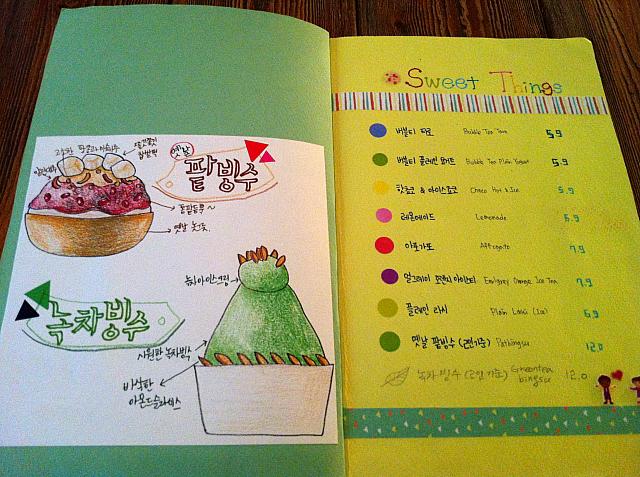 옛날
팥빙수
녹차아이스크림
녹차빙수
시원한 녹차빙수
바삭한
아몬드슬라이스
Sweet Things
버블티 타로 Bubble Tea Taro 5.9
버블티 플레인 요거트 Bubble Tea Plain Yogurt 5.9
핫초코 & 아이스초코 Choco Hot & Ice 5.9
레몬에이드 Lemonade 6.9
아포가토 Affogato 7.9
얼그레이 오렌지 아이스티 Earlgrey Orange Ice Tea 7.9
플레인 라씨 Plain Lassi (Ice) 6.9
옛날 팥빙수 (2인기준) Patbingsu 12.0
녹차 빙수 (2인기준) Greentea bingsu 12.0